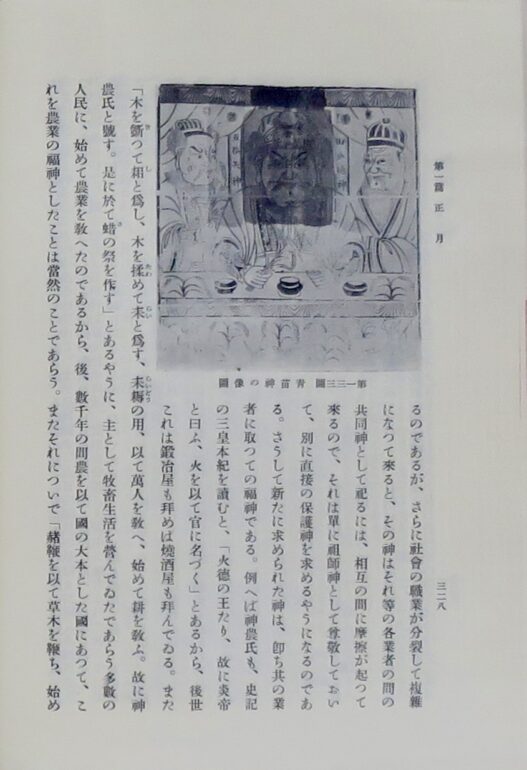 第一篇 正月
三二八
るのであるが、さらに社會の職業が分裂して複雜
になつて來ると、その神はそれ等の各業者の間の
共同神として祀るには、相互の間に摩擦が起つて
來るので、それは單に祖師神として尊敬しておい
て、別に直接の保護神を求めるやうになるのであ
る。さうして新たに求められた神は、卽ち其の業
者に取つての福神である。例へば神農氏も、史記
の三皇本紀を讀むと、「火德の王たり、故に炎帝
と曰ふ、火を以て官に名づく」とあるから、後世
これは鍛冶屋も拜めば燒酒屋も拜んでゐる。また
第一三三圖 靑苗神の像圖
「木を斵つて耜と爲し、木を揉めて耒と爲す、耒耨の用、以て萬人を敎へ、始めて耕を敎ふ。故に神
農氏と號す。是に於て蜡の祭を作す」とあるやうに、主として牧畜生活を營んでゐたであらう多數の
人民に、始めて農業を敎へたのであるから、後、數千年の間農を以て國の大本とした國にあつて、こ
れを農業の福神としたことは當然のことであらう。またそれについで「赭鞭を以て草木を鞭ち、始め